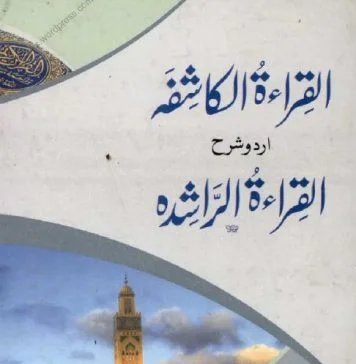 wordpress.com
القِراءةُ الکاشِفہ
اردو شرح
القِراءةُ الرَّاشدہ